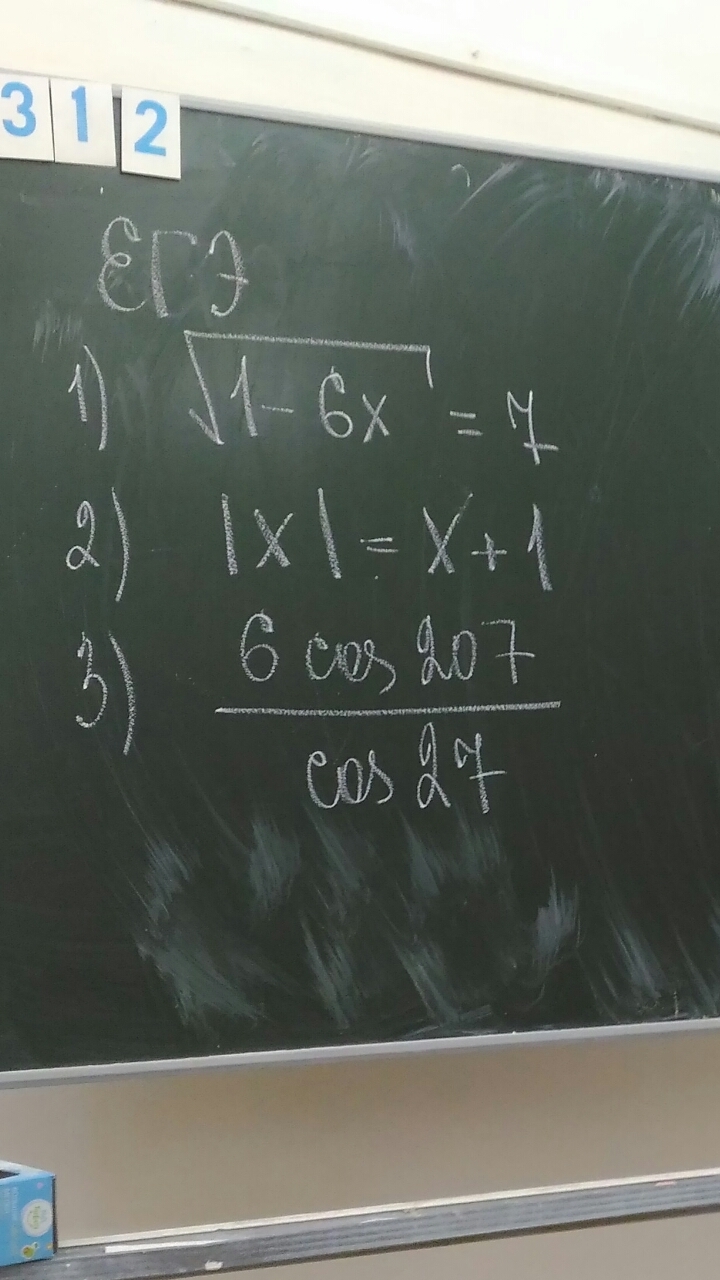 312
ЕГЭ
1) √1-6x = 7
2) |x| = x+1
3) 6 cos 207
cos 27